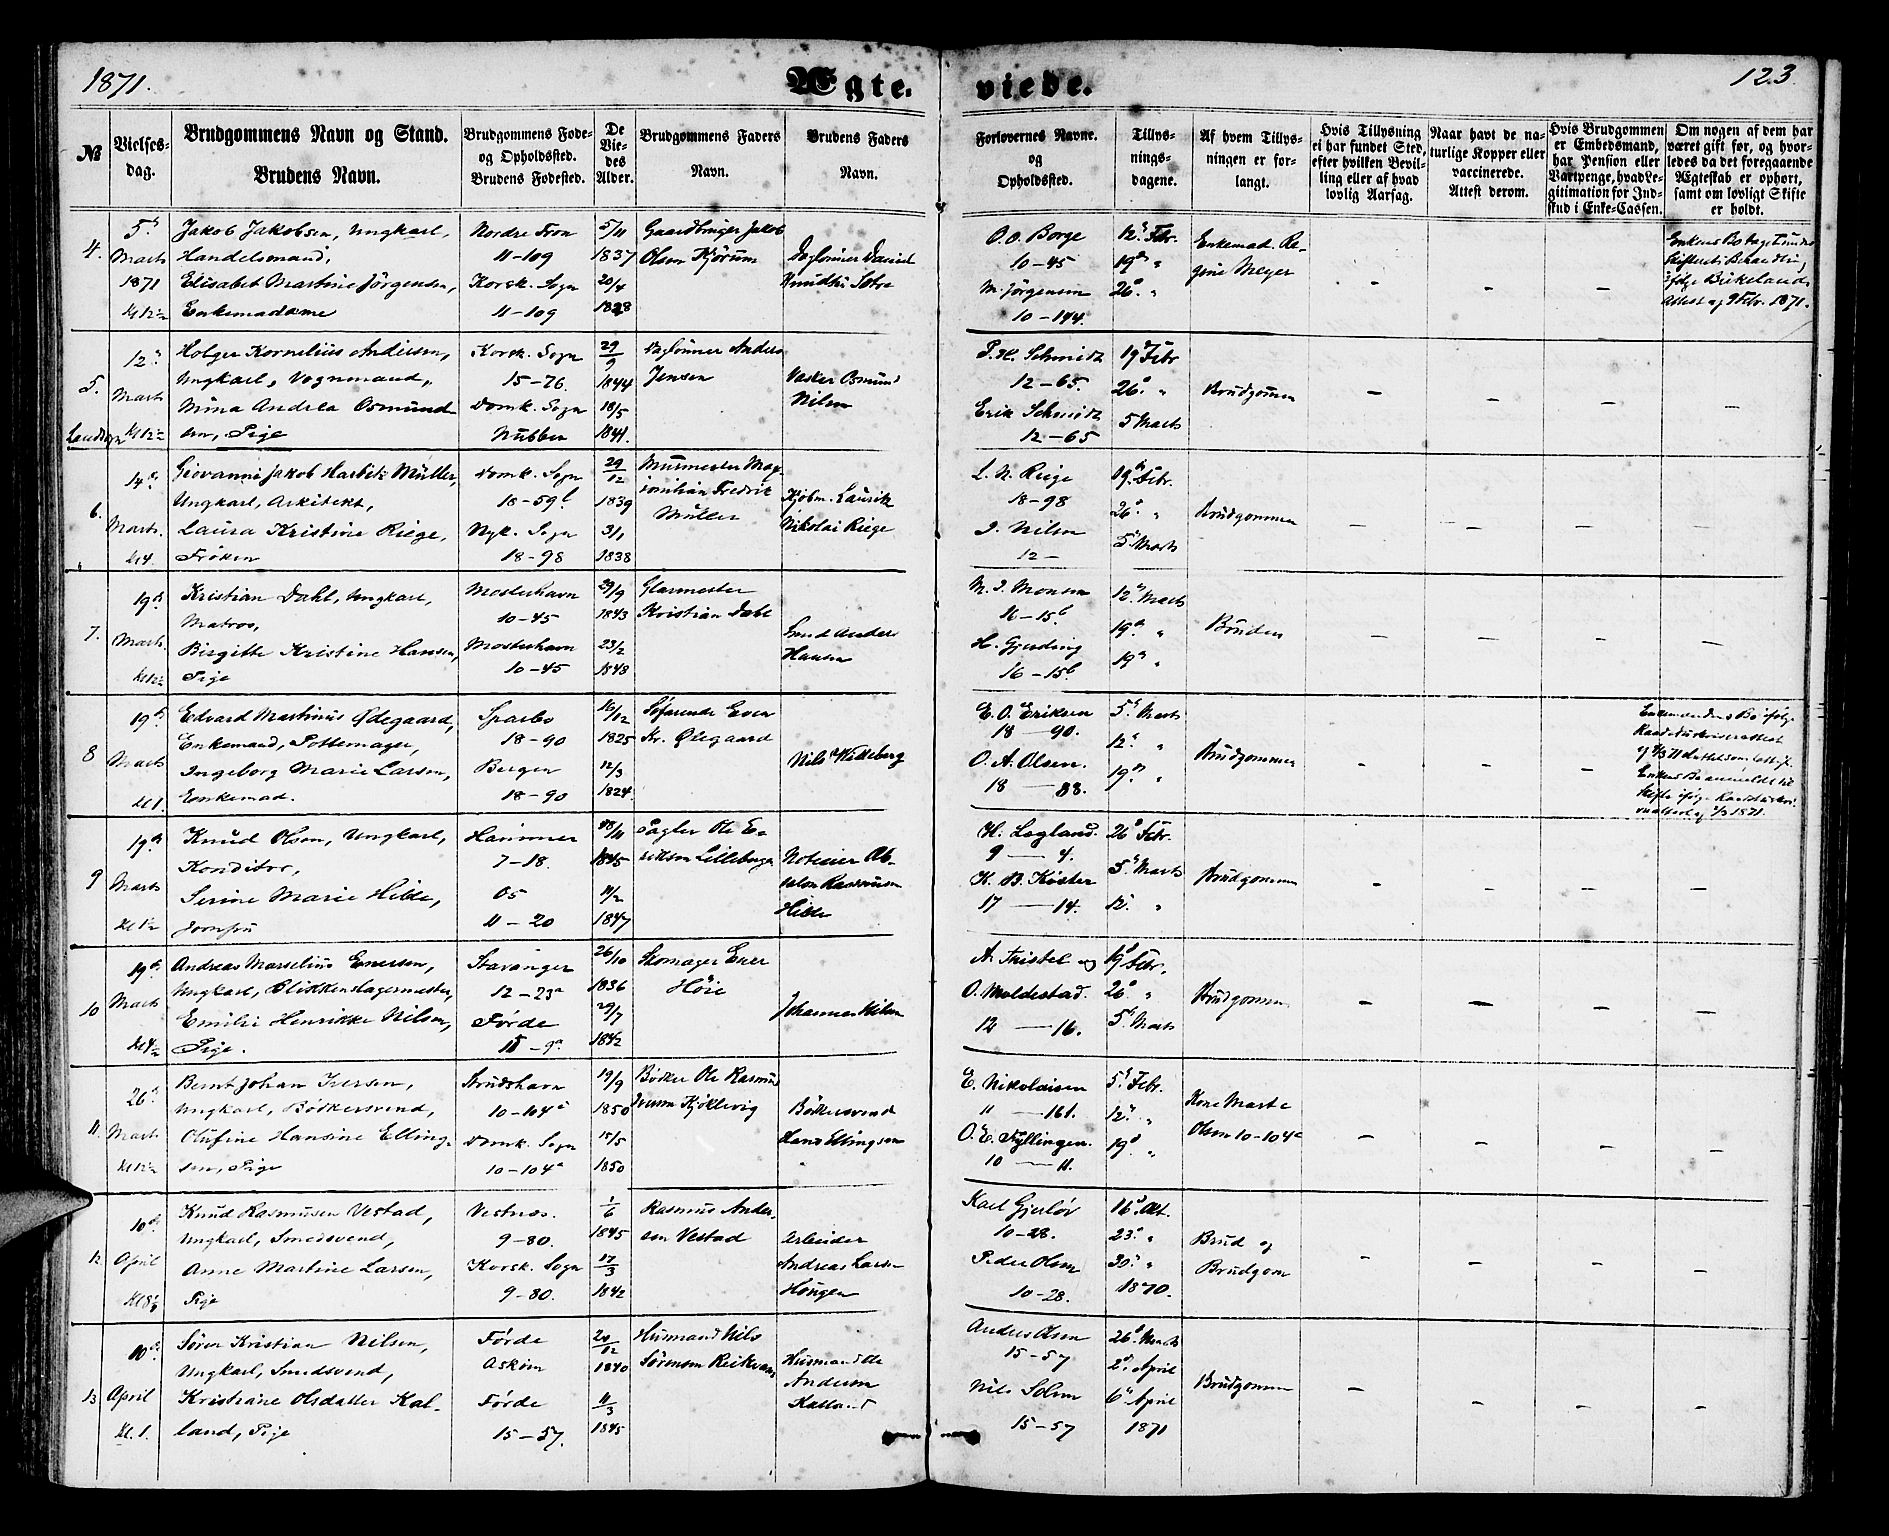 1871.
Ægte-
viede.
123
№
Vielses-
dag.
Brudgommens Navn og Stand.
Brudens Navn.
Brudgommens Føde-
og Opholdssted.
Brudens Fødested.
De
Vie-
des
Alder.
Brudgommens Faders
Navn.
Brudens Faders
Navn.
Forlovernes Navne.
og
Opholdssted.
Tillys-
nings-
dagene.
Af hvem Tillys-
ningen er for-
langt.
Hvis Tillysning
ei har fundet Sted,
efter hvilken Bevil-
ling eller af hvad
lovlig Aarsag.
Naar havt de na-
turlige Kopper eller
vaccinerede.
Attest derom.
Hvis Brudgommen
er Embedsmand,
har Pension eller
Vartpenge, hvad Le-
gitimation for Ind-
skud i Enke-Cassen.
Om nogen af dem har
været gift før, og hvor-
ledes da det foregaaende
Ægteskab er ophørt,
samt om lovligt Skifte
er holdt.
4.
5te
Marts
1871
Kl 12½
Jakob Jakobsen, Ungkarl,
Handelsmand,
Elisabet Martine Jörgensen,
Enkemadame
Nordre Fron
11-109
Korsk. Sogn
11-109
5/11
1837
20/4
1828
Gaardbruger Jakob
Olsen Kjörum
Daglönner Daniel
Knudsen Sotre
O. O. Borge
10-45
M. Jörgensen
10-144.
12te Febr.
19de "
26de "
Enkemad. Re-
gine Meyer
Enkens Bo tages under
Skifterets Behandling
ifölge Birkelands
Attest af 9 Febr. 1871.
5.
12te
Marts
Kl 12½
Holger Kornelius Andersen,
Ungkarl, Vognmand,
Nina Andrea Osmund-
sen, Pige
Korsk. Sogn
15-76.
Domk. Sogn
Nubben
29/9
1844
18/5
1841.
Daglönner Anders
Jensen
Vasker Osmund
Nilsen
P. H. Schmidt
12-65.
Erik Schmidt
12-65
19de Febr.
26de "
5 Marts
Brudgommen
6.
14de
Marts.
Kl 4.
Giovanni Jakob Harbitz Müller,
Ungkarl, Arkitekt,
Laura Kristine Riege,
Fröken
Domk. Sogn
18-59b
Nyk. Sogn
18-98
29/12
1839
3/1
1838
Murmester Max-
imilian Fredrik
Müller
Kjöbm. Laurits
Nikolai Riege
L. N. Riege
18-98
J. Nilsen
12-
19de Febr.
26de "
5te Marts
Brudgommen
7.
19de
Marts.
Kl 12½
Kristian Dahl, Ungkarl,
Matros,
Birgitte Kristine Hansen,
Pige
Mosterhavn
10-45
Mosterhavn
10-45
29/9
1843
23/2
1848
Glarmester
Kristian Dahl
Anders
Hansen
M. J. Monsen
16-15b
H. Gjerding
16-15b
12te Marts
19de "
19de "
Bruden
8
19de
Marts
Kl 1.
Edvard Martinus Ödegaard,
Enkemand, Pottemager,
Ingeborg Marie Larsen,
Enkemad.
Sparbo
18-90
Bergen
18-90
16/12
1825
12/3
1824.
Söfarende Even
Kr. Ödegaard
Nils Hetleberg
E. O. Eriksen
18-90.
O. A. Olsen.
18-88.
5te Marts
12te "
19de "
Brudgommen
9
19de
Marts
Kl 1½
Knud Olsen, Ungkarl,
Konditor,
Serine Marie Hilde,
Jomfru
Hammer
7-18.
Os
11-20
1845
11/2
1847
Ole E-
riksen Lilleberge
Ab-
salon Rasmusen
Hilde
H. Legland.
9-4.
H. B. Köster
17-14.
26de Febr.
5te Marts
12te "
Brudgommen
10
19de
Marts
Kl 4½
Andreas Marselius Enersen,
Ungkarl, Blikkenslagermester,
Emilie Henrikke Nilsen,
Pige.
Stavanger
12-23a
Förde
15-9a
26/10
1836
29/7
1842
Skomager Ener
Höie
Johannes Nilsen
A. Tristel og
O. Moldestad.
12-16.
19de Febr.
26de "
5te Marts
Brudgommen
11.
26de
Marts
Kl 12½
Bernt Johan Iversen,
Ungkarl, Bödkersvend,
Olufine Hansine Elling-
sen, Pige
Strudshavn
10-104a
Domk. Sogn
10-104a
19/9
1850
15/5
1850
Bödker Ole Rasmus
Iversen Kjöklevig
Bödkersvend
Hans Ellingsen
E. Nikolaisen
11-161.
O. E. Fyllingen.
10-11.
5te Febr.
12te "
19de "
Kone Marte
Olsen 10-104a
12
10de
April
Knud Rasmusen Vestad,
Ungkarl, Smedsvend,
Anne Martine Larsen,
Pige
Vestnes.
9-80.
Korsk. Sogn
9-80.
1/6
1845
17/3
1842
Rasmus Ander-
sen Vestad
Arbeider
Andreas Larsen
Haugen
Karl Gjerlöv
10-28.
Peder Olsen
10-28.
16de Okt.
23de "
30te "
1870.
Brud og
Brudgom
13
10de
April
Kl. 1.
Sören Kristian Nilsen,
Ungkarl, Smedsvend,
Kristiane Olsdatter Kal-
land, Pige
Förde
Asköen
Förde
15-57.
20/12
1840
11/3
1845
Husmand Nils
Sörensen Reikvam
Husmand Ole
Andersen
Kalland
Anders Olsen
15-57
Nils Solem
15-57
26de Marts
2den April
6te April
1871
Brudgommen